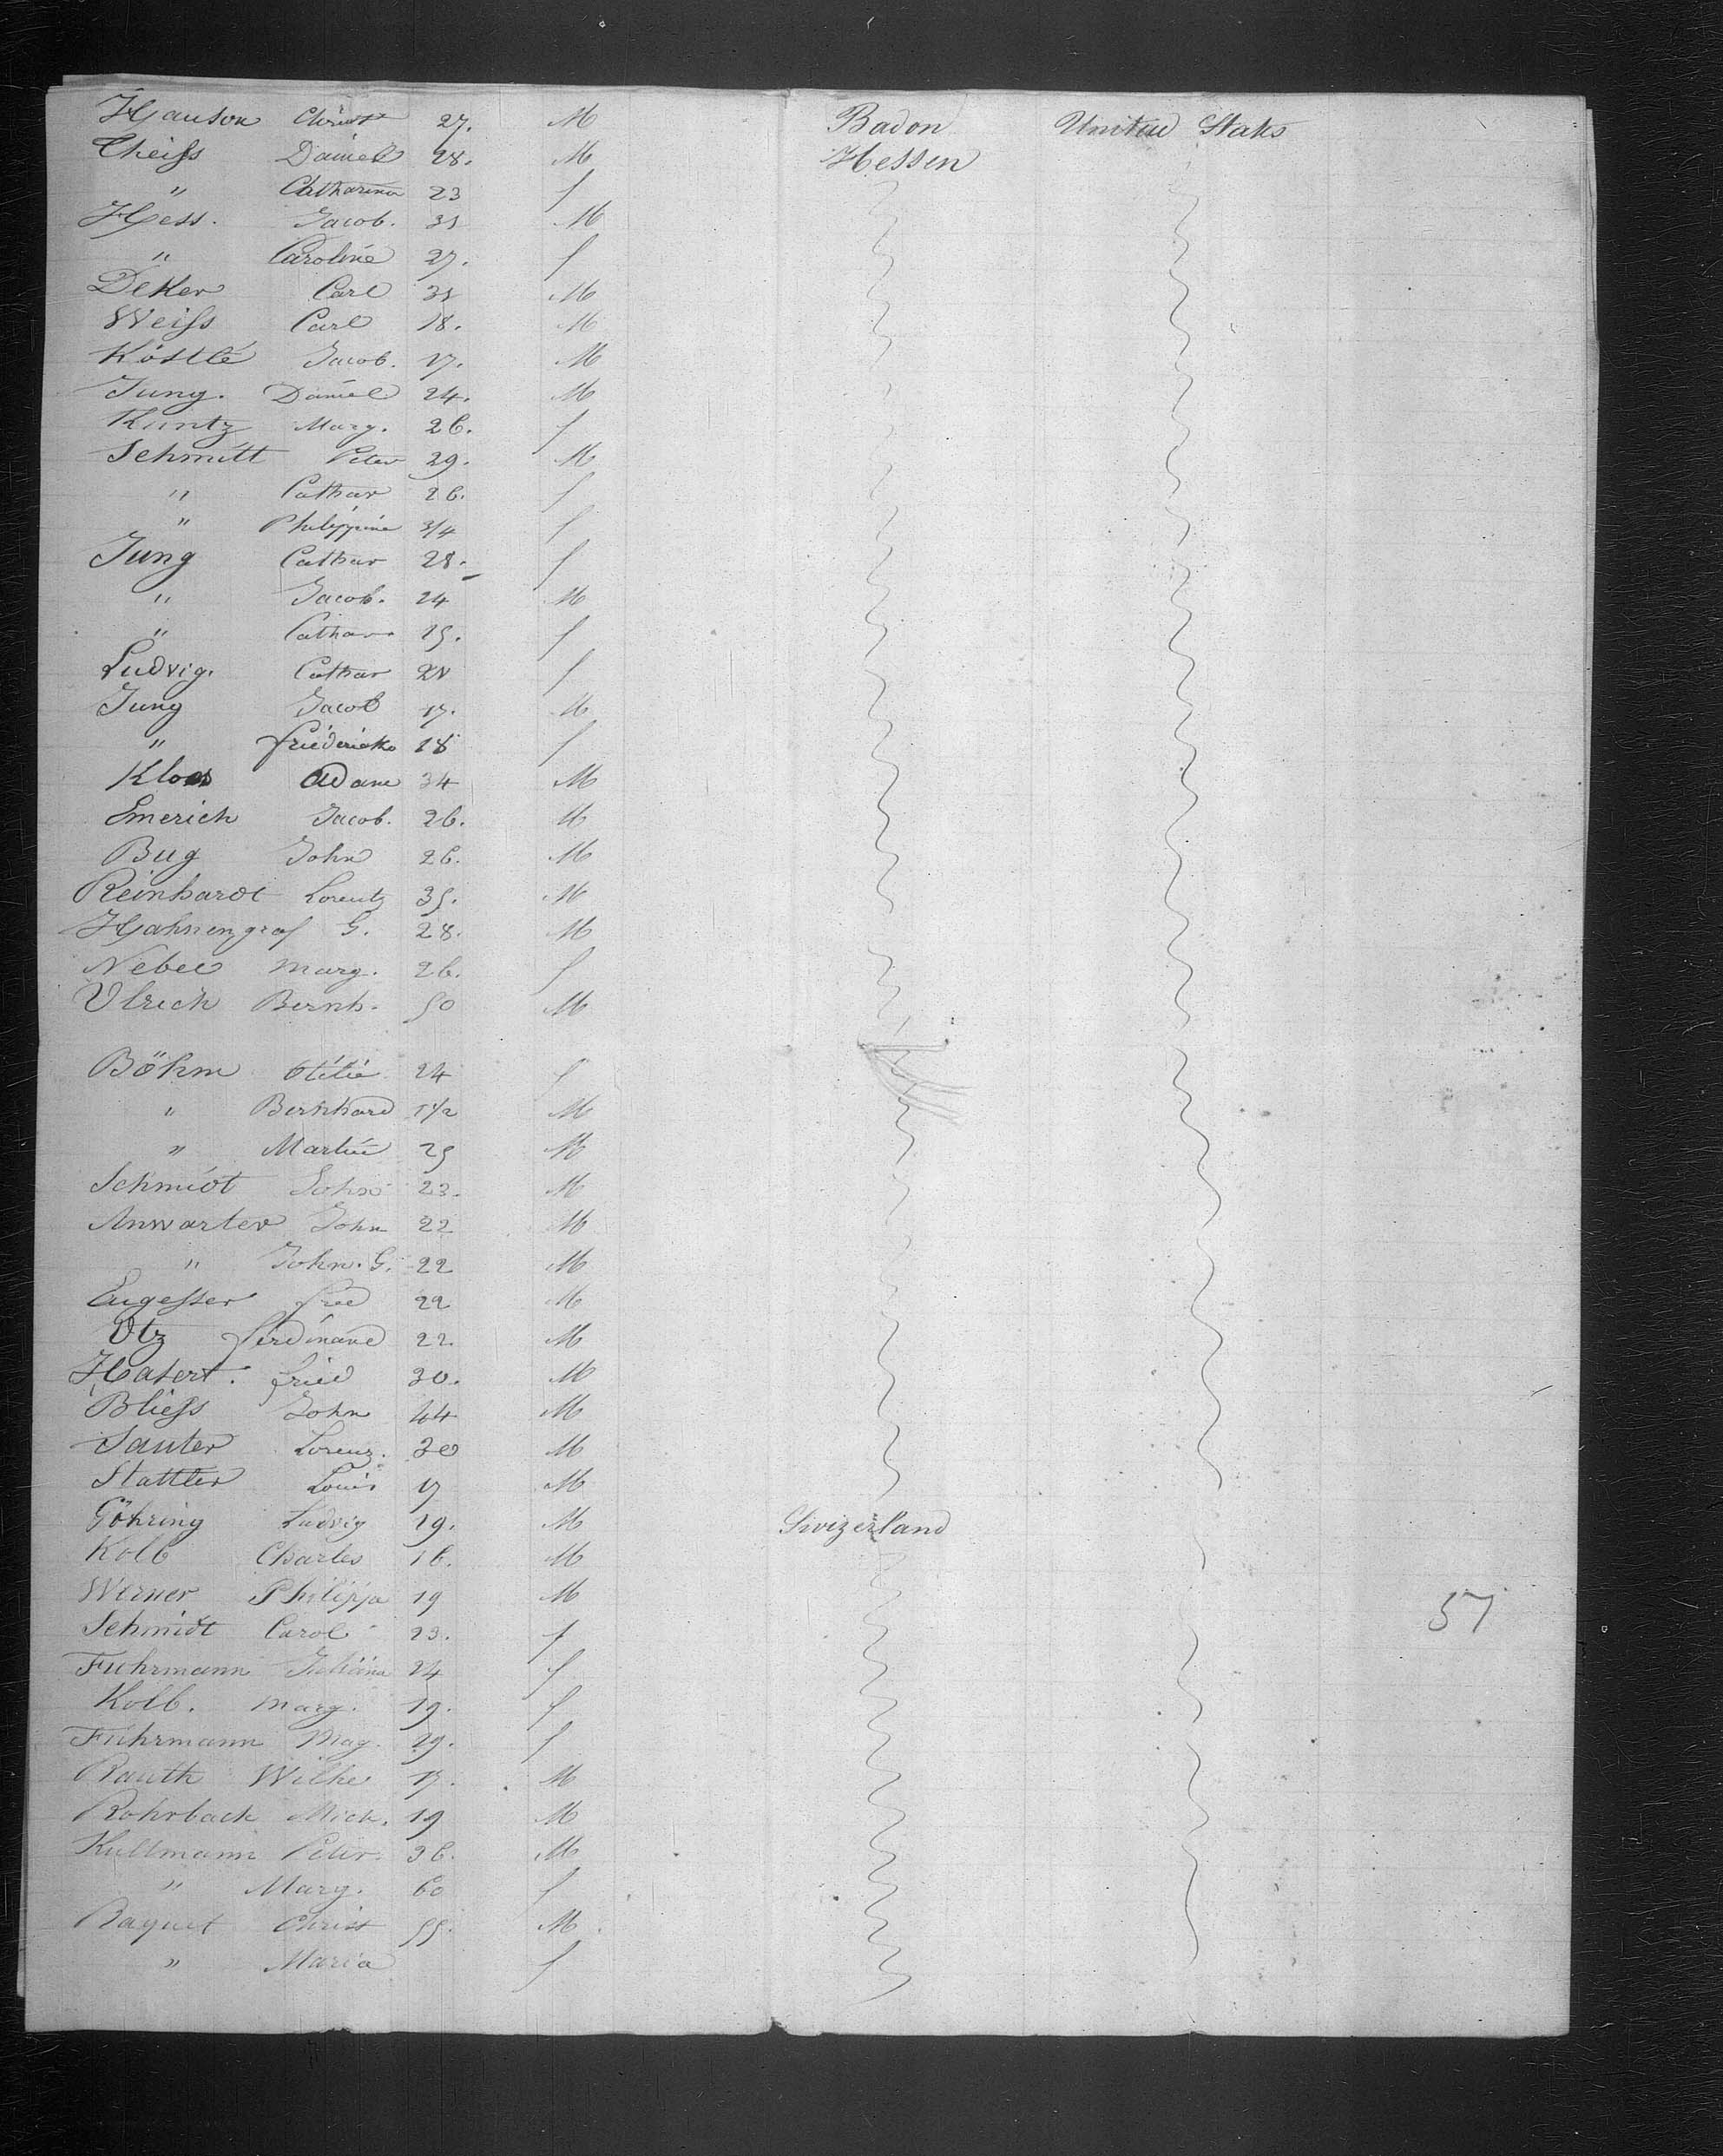 Hauson Christ 27. M Badon United Staks
Theiss Daniel 28. M Hessen
" Catharina 23 f
Hess. Jacob. 31 M
" Caroline 27. f
Deker Carl 31 M
Weiss Carl 18. M
Köstlé Jacob. 17. M
Jung. Daniel 24. M
Kuntz Marg. 26. f
Schmitt Peter 29. M
" Cathar 26. f
" Philippine 3/4 f
Jung Cathar 28. f
" Jacob. 24 M
" Cathar 15. f
Ludvig. Cathar 21 f
Jung Jacob 17. M
" friedericke 18 f
Kloos Adam 34 M
Emerich Jacob. 26. M
Bug John 26. M
Reinhardt Lorentz 35. M
Hahnengraf G. 28. M
Nebel Marg. 26. f
Ulrich Bernh. 50 M
Böhm Otilie 24 f
" Bernhard 1 1/2 M
" Martin 25 M
Schmidt John 23. M
Anwarter John 22 M
" John. G. 22 M
Eugesser fried 22 M
Utz ferdinand 22. M
Hasert. fried 30. M
Bliess John 44 M
Sauter Lorenz. 30 M
Stattler Louis 17 M
Göhring Ludvig 19. M Swizerland
Kolb Charles 16. M
Werner Philipp 19 M 57
Schmidt Carol 23. f
Fuhrmann Juliana 24 f
Kolb. Marg. 19. f
Fuhrmann Mag. 29. f
Rauth Wilhe 17. M
Rohrback Mich. 19 M
Kullmann Peter. 36. M
" Marg. 60 f
Baquet Christ 55. M
" Maria f